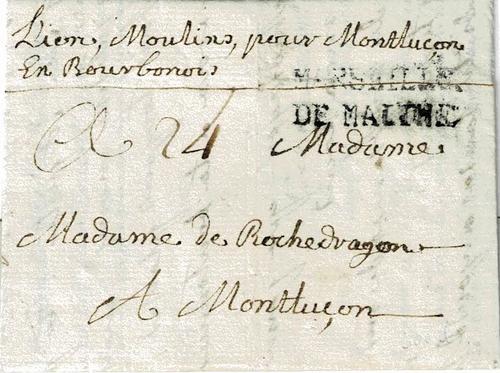 Lien, Moulins, pour Montluçon
En Bourbonois
MARSEILLE
DE MALTHE
24 Madame.
Madame de Rochedragon
A Montluçon